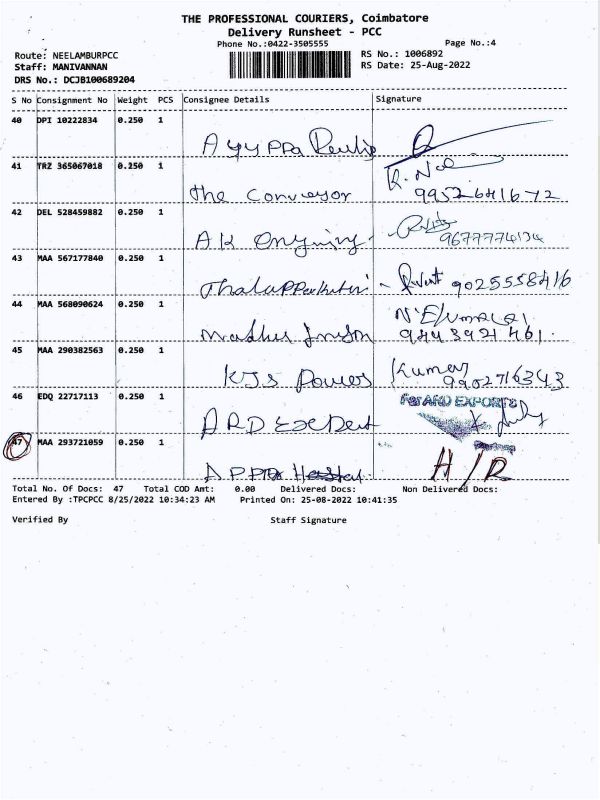 THE PROFESSIONAL COURIERS, Coimbatore
Delivery Runsheet - PCC
Phone No.:0422-3505555
Page No.:4
Route: NEELAMBURPCC
RS No.: 1006892
Staff: MANIVANNAN
RS Date: 25-Aug-2022
DRS No.: DCJB100689204
S No Consignment No Weight PCS Consignee Details Signature
40 DPI 10222834 0.250 1
41 TRZ 365067018 0.250 1
The Conveyor
9952641672
42 DEL 528459882 0.250 1
AK
43 MAA 567177840 0.250 1
9025558416
44 MAA 568090624 0.250 1
9443921461
45 MAA 290382563 0.250 1
KJS Powers Kumar
9902716343
46 EDQ 22717113 0.250 1
For ARD EXPORTS
ARD
47 MAA 293721059 0.250 1
H/R
Total No. Of Docs: 47 Total COD Amt: 0.00 Delivered Docs: Non Delivered Docs:
Entered By :TPCPCC 8/25/2022 10:34:23 AM Printed On: 25-08-2022 10:41:35
Verified By Staff Signature